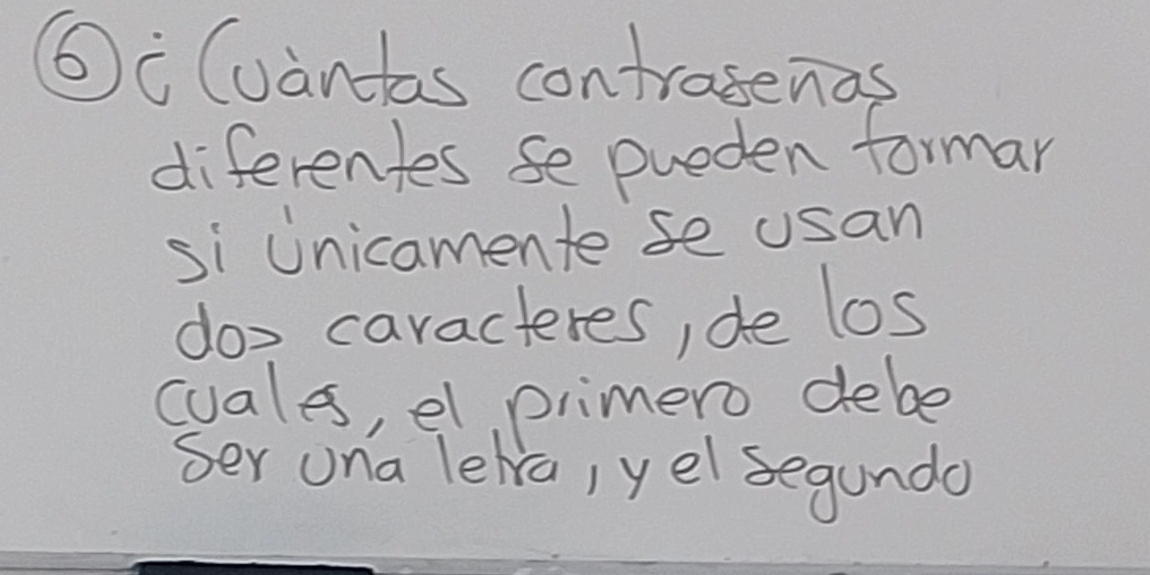 ⑥ ¿Cuàntas contraseñas
diferentes se pueden formar
si únicamente se usan
dos caracteres, de los
cuales, el primero debe
ser una letra, y el segundo